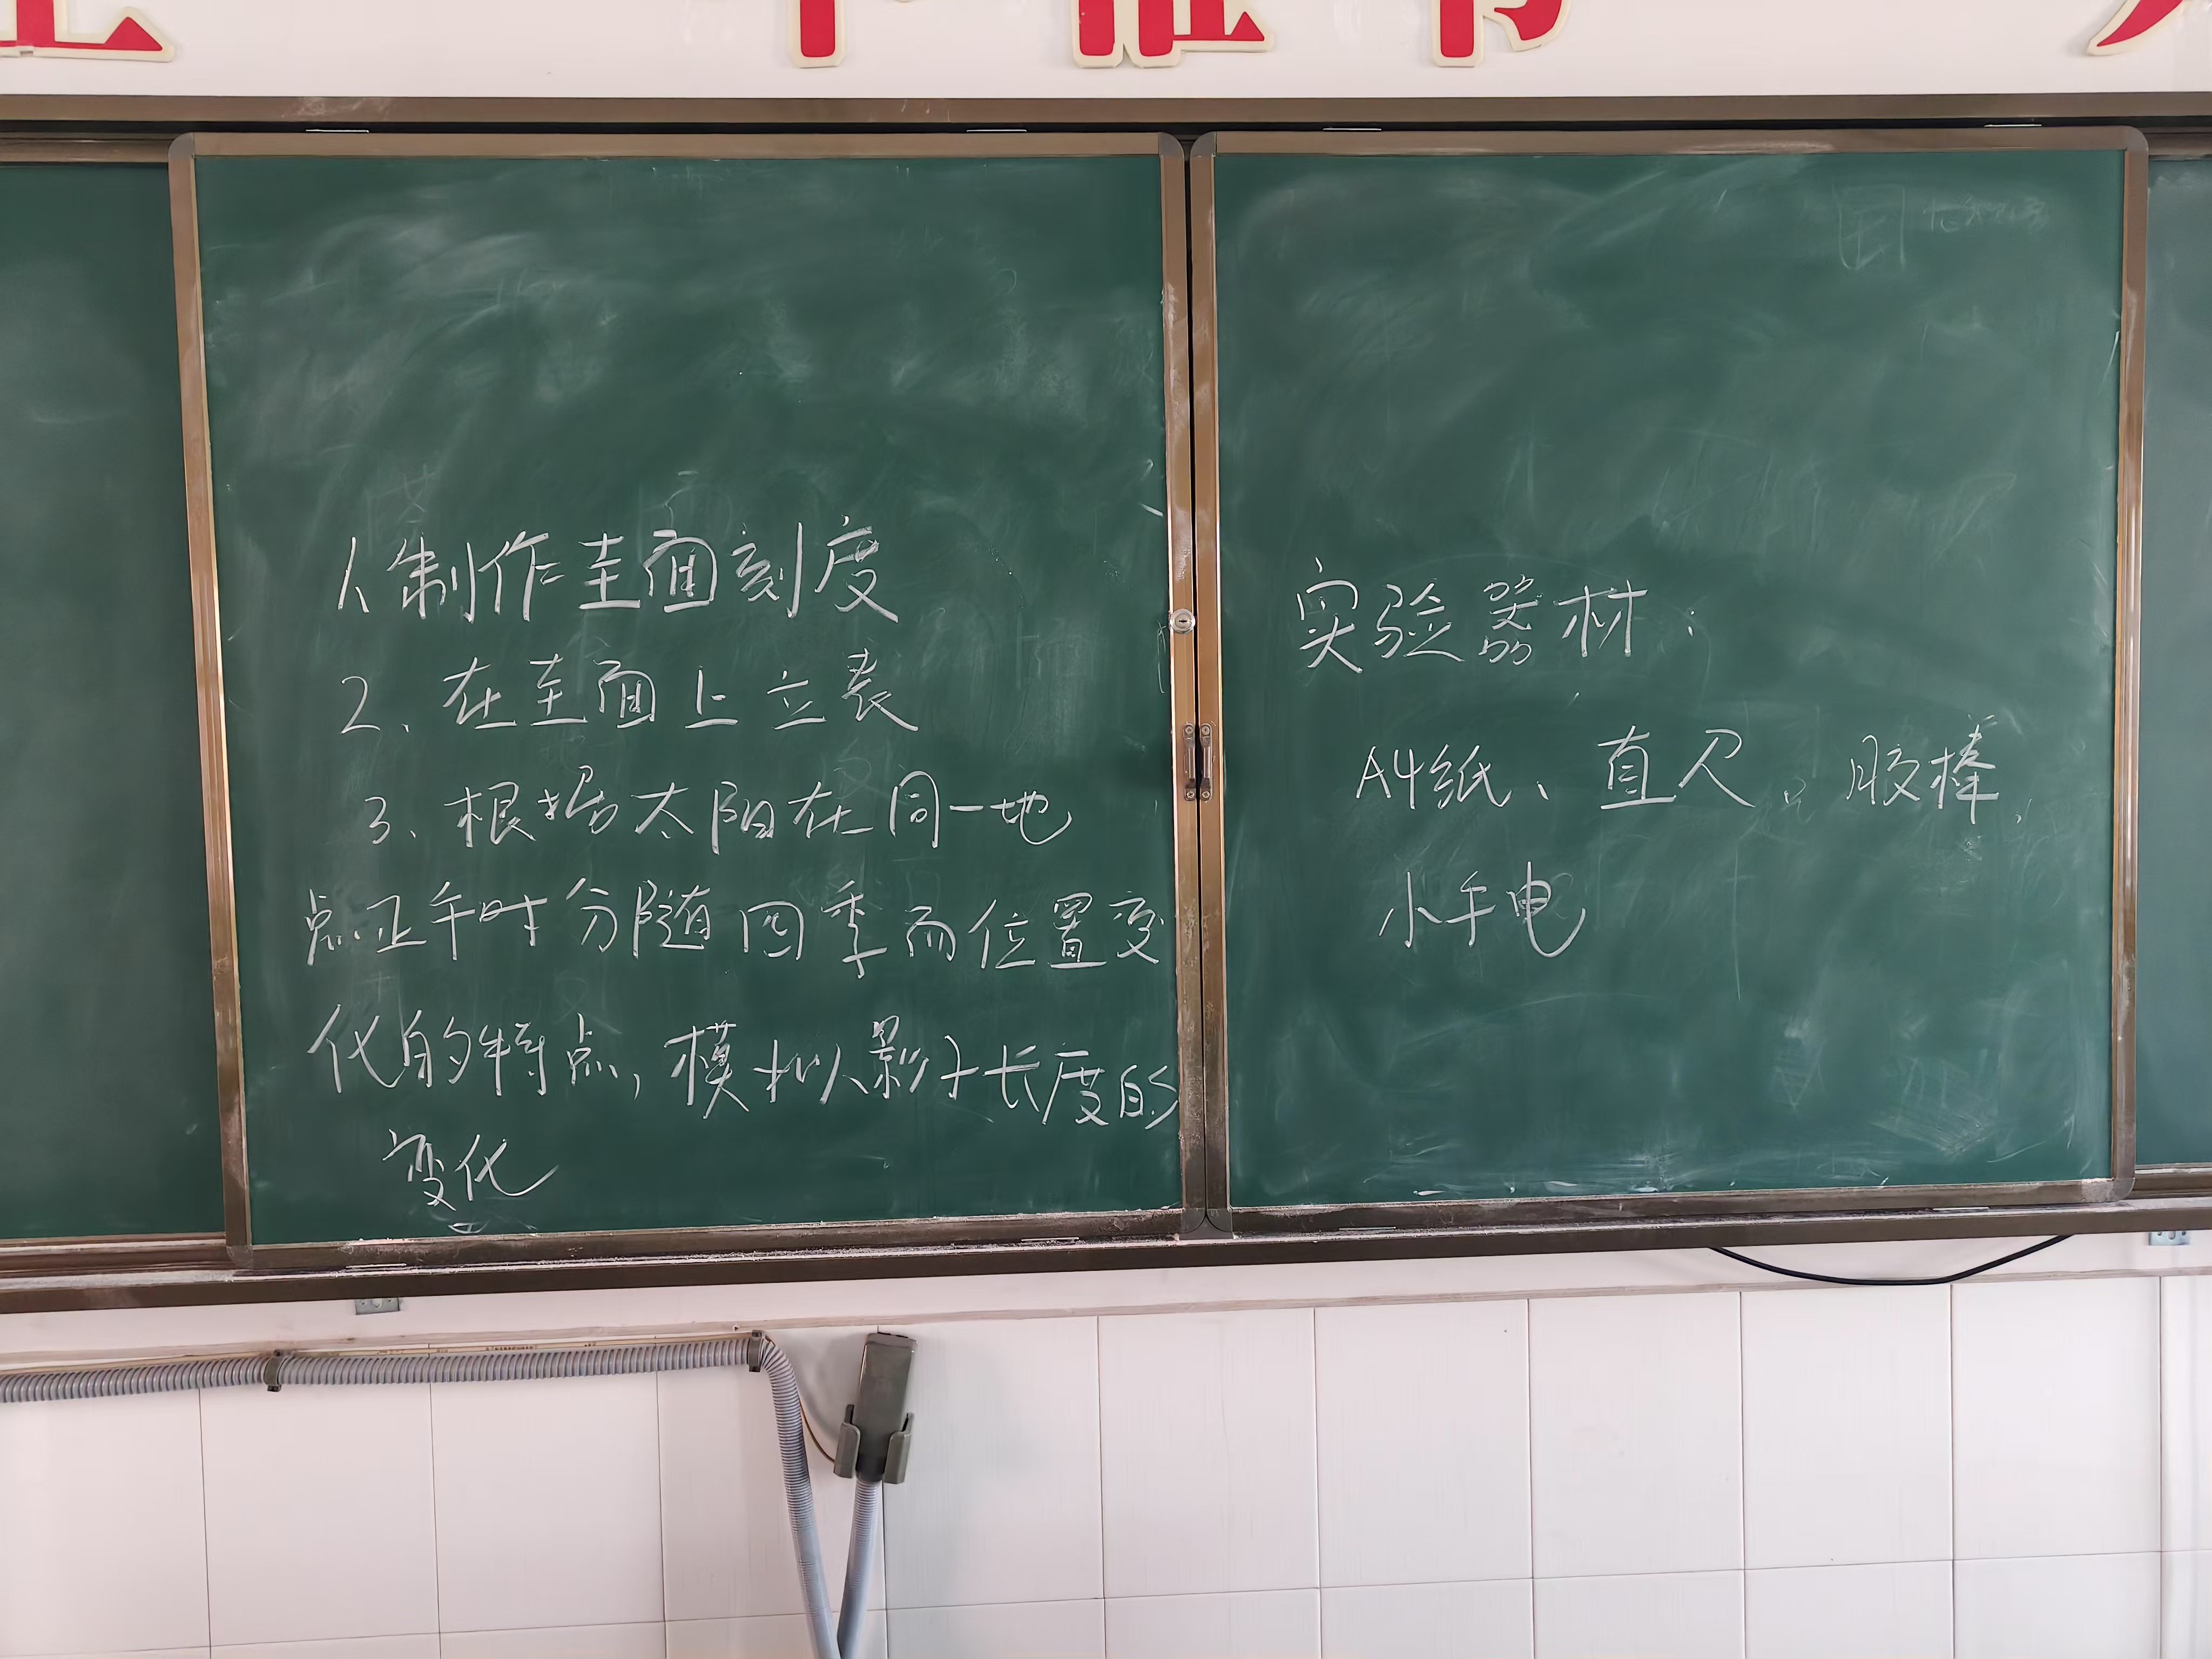 1、制作圭面刻度
2、在圭面上立表
3、根据太阳在同一地
点正午时分随四季而位置变
化的特点，模拟影子长度的
变化
实验器材：
A4纸、直尺。胶棒、
小手电